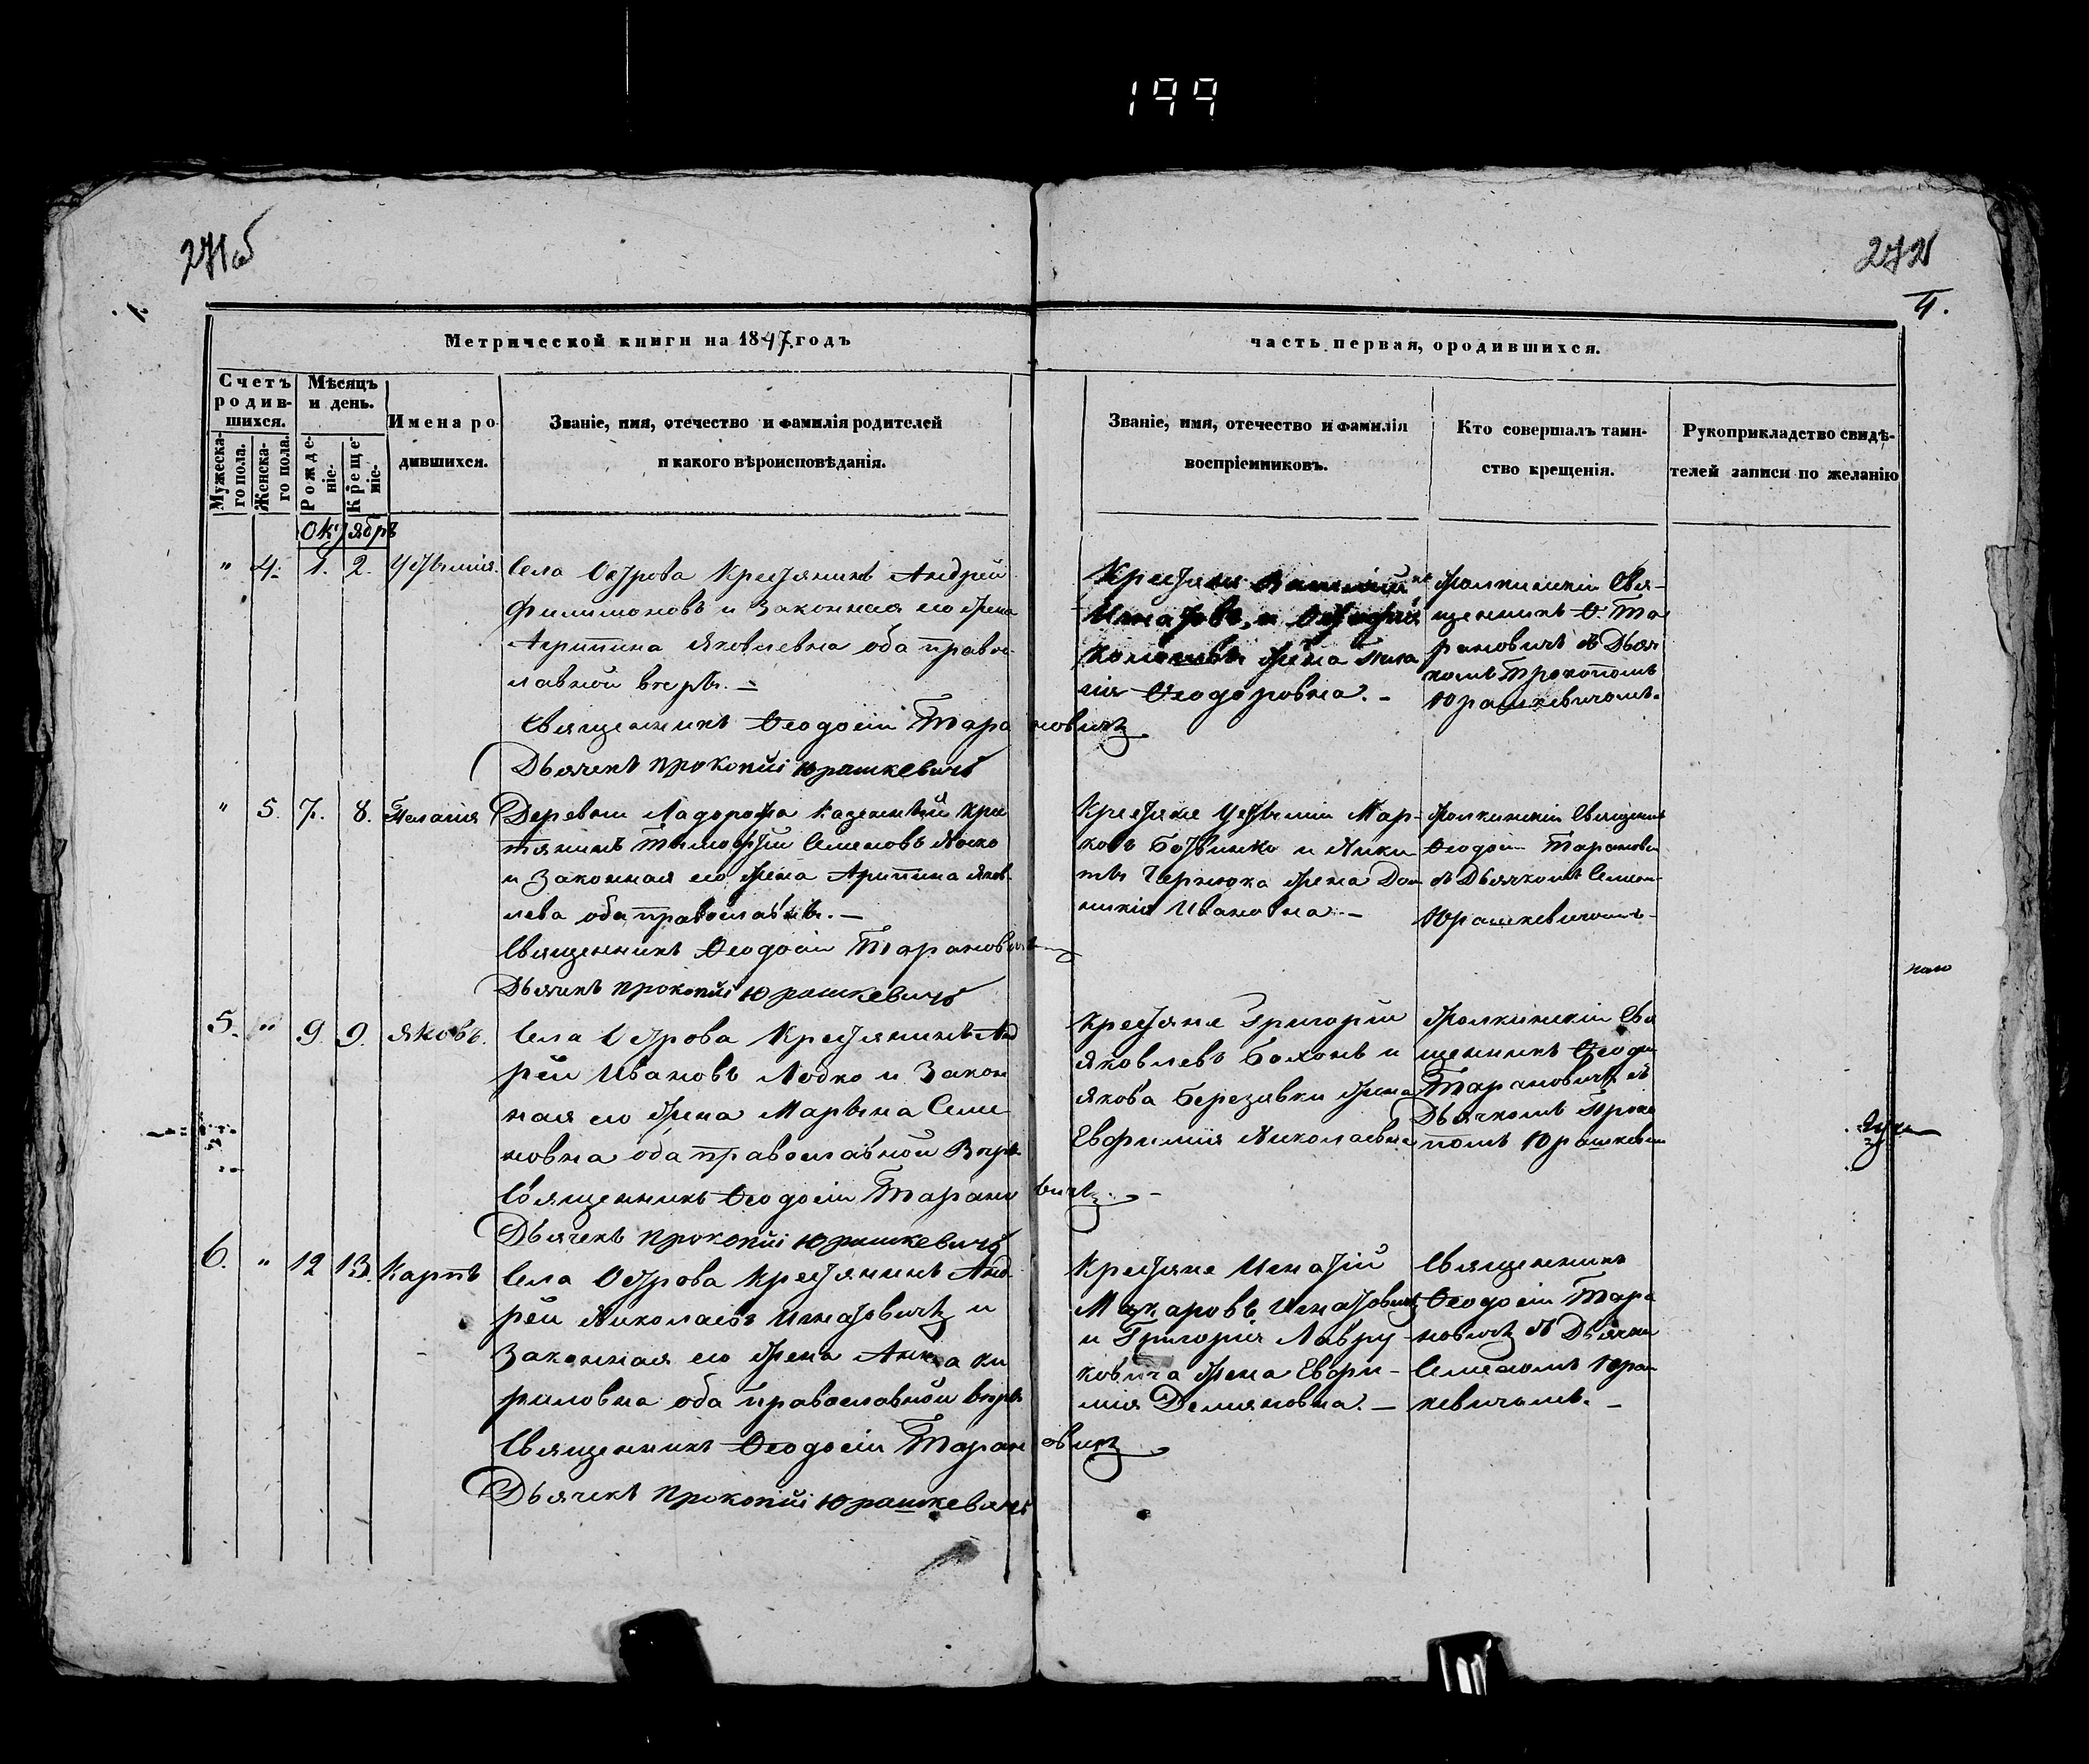 199
271об
272
4.
Метрической книги на 1847. годъ
часть первая, о родившихся.
Счетъ родив-
шихся.
Мужеска-
го пола.
Женска-
го пола.
Мѣсяцъ
и день.
Рожде-
ніе.
Креще-
ніе.
Имена ро-
дившихся.
Званіе, имя, отечество и фамилія родителей
и какого вѣроисповѣданія.
Званіе, имя, отечество и фамилія
воспріемниковъ.
Кто совершалъ таин-
ство крещенія.
Рукоприкладство свидѣ-
телей записи по желанію
Октябрь
" 4. 1. 2.
Села Острова Крестянинъ Андрей
Филимоновъ и Законная его жена
Агрипина Яковлевна оба право-
лавной вѣры. —
Священникъ Ѳеодосій Тарановичъ
Дьячекъ Прокопій Юрашкевичъ
Крестяни
Игнатовъ, и
жена Пела
гия Ѳеодоровна. -
Свя-
щенникъ Ѳ. Та
рановичъ съ Дья
комъ Прокопомъ
Юрашкевичомъ.
" 5. 7. 8. Пелагия
Деревни Казенный Крес
тянинъ Тимофтій Семеновъ
и Законная его жена Агрипина Яков
лева оба православнъ. —
Священникъ Ѳеодосій Тарановичъ
Дьячекъ Прокопій Юрашкевичъ
Крестяне Мар-
ковъ Ботвинко и Ники
ты Чернюка жена Дом
никія Ивановна. —
Священик
Ѳеодосій Таранови
съ Дьячкомъ Семен-
Юрашкевичомъ
5. " 9. 9. Яковъ.
Села Острова Крестянинъ Анд
рей Ивановъ Лодко и Закон
ная его жена Марьяна Семе
новна оба православной Вѣры
Священникъ Ѳеодосій Тарановичъ. -
Дьячекъ Прокопій Юрашкевичъ
Крестяне Григорій
Яковлевъ и
Якова Березавки жена
Евфимия Николаевна
Свя
щенникъ Ѳеодосій
Тарановичъ съ
Дьячкомъ Проко
помъ Юрашкевич
6. " 12 13. Карпъ
Села Острова Крестянинъ Анд
рей Николаевъ Игнатовичъ и
Законная его жена Анна Ки
риловна оба православной вѣры
Священникъ Ѳеодосій Тарановичъ
Дьячекъ Прокопій Юрашкевичъ
Крестяне Игнатій
Макаровъ Игнатовичъ
и Григорія Лавру
ковича жена Евфи-
мия Демяновна. —
Священникъ
Ѳеодосій Тара
новичъ съ Дьячко
Семеномъ Юраш
кевичомъ. —